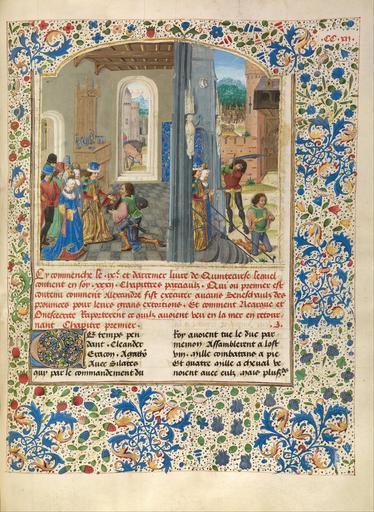 .CC.xii.
Cy commenche le .ix.e et darrenier livre de Quintecurse lequel
contient en soy .xxxiii. Chapittres parciaulx. Dui ou premier est
contenu comment Alexandre fist executer aucuns Seneschaulx des
provinces pour leurs grans extorsions. Et comment Nearque et
Onesecrite Rapporterent ce quilz avoient veu en la mer en retour
nant Chapitre premier. .3.
Es temps pen
dant. Cleander
Eracon. Agatho
Avec Sitares
qui par le commandement du
Roy avoient tue le duc par
menon Assamblerent a lost
mille combatans a pie
Et quatre mille a cheval ve
noient avec eulz mais pluss